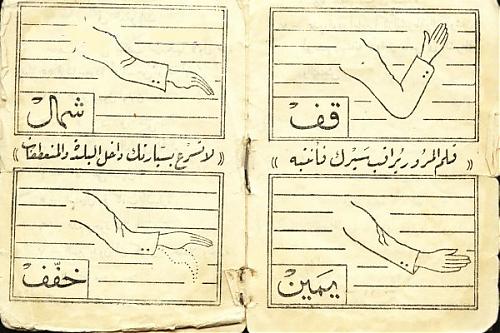 قف
« قلم المرور يراقب سيرك فانتبه »
يمين
شمال
« لا تسرع بسيارتك داخل البلد والمنعطفات »
خفّف